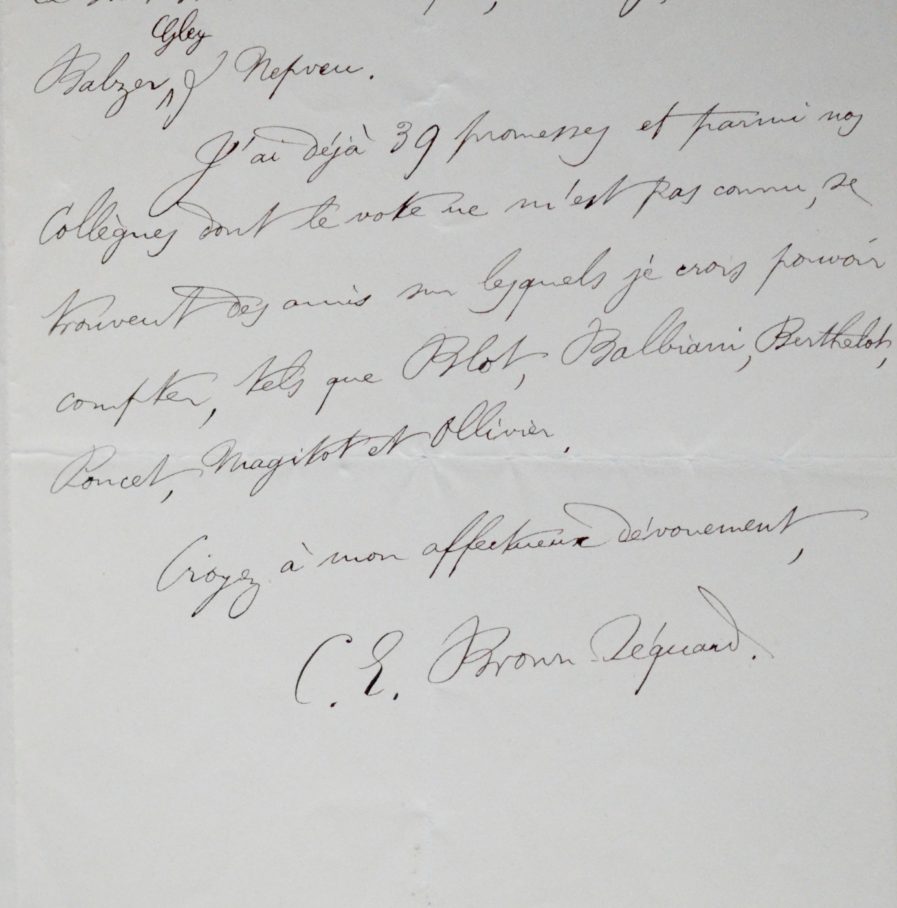 Gley
Balzer, & Nepveu.
J'ai déjà 39 promesses et parmi nos
Collègues dont le vote ne m'est pas connu, se
trouvent des amis sur lesquels je crois pouvoir
compter, tels que Blot, Balbiani, Berthelot,
Poncet, Magitot et Ollivier.
Croyez à mon affectueux dévouement,
C. E. Brown-Séquard.